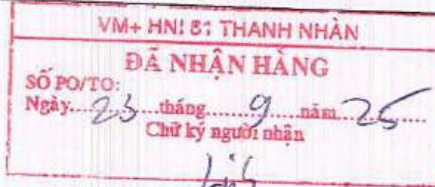 VM+ HNI 81 THANH NHÀN
ĐÃ NHẬN HÀNG
SỐ PO/TO:
Ngày 23 tháng 9 năm 25
Chữ ký người nhận